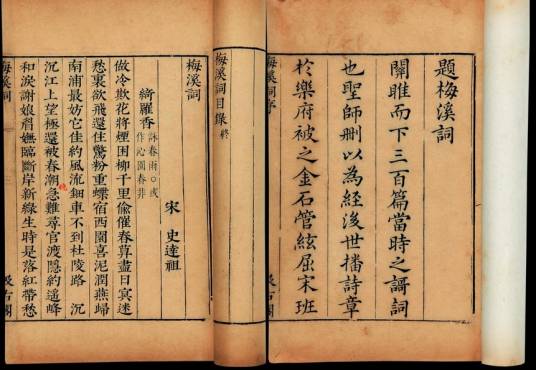 題梅溪詞
關雎而下三百篇當時之謌詞
也聖師刪以為經後世播詩章
於樂府被之金石管絃屈宋班
梅溪詞序
汲古閣
梅溪詞目錄 終
梅溪詞
宋 史達祖
綺羅香 詠春雨○或作沁園春非
做冷欺花將煙困柳千里偷催春暮盡日冥迷
愁裏欲飛還住驚粉重蝶宿西園喜泥潤燕歸
南浦最妨它佳約風流鈿車不到杜陵路 沉
沉江上望極還被春潮急難尋官渡隱約遙峰
晚
和淚謝娘眉嫵臨斷岸新綠生時是落紅帶愁
梅溪詞
汲古閣